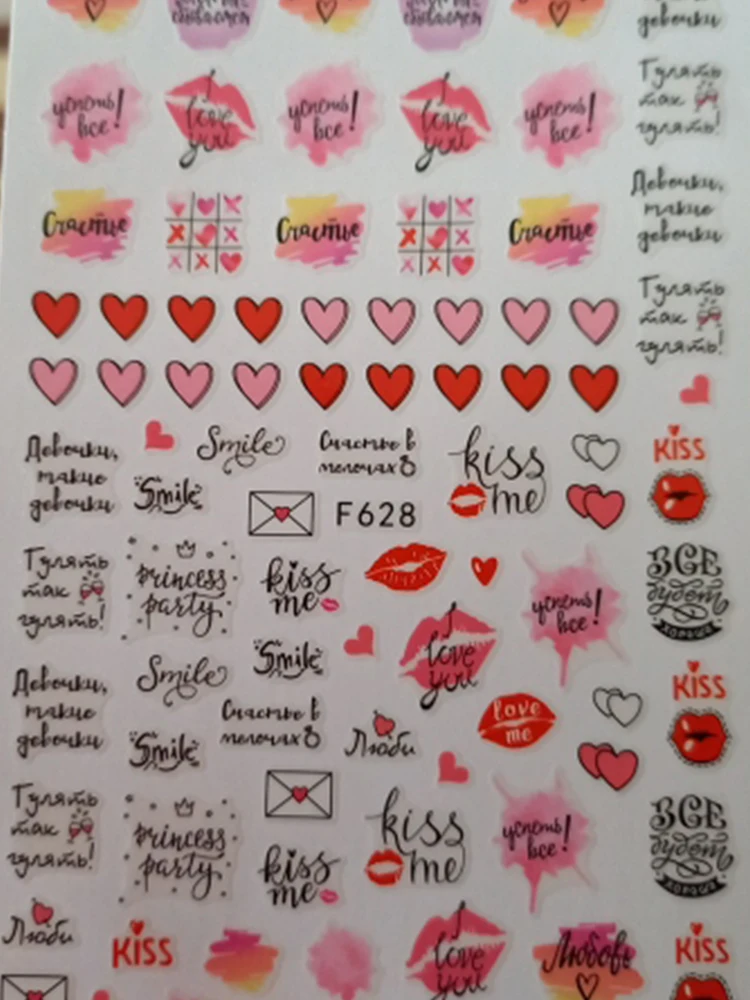 девочки
успеть
все!
I
love
you
успеть
все!
I
love
you
успеть
все!
Гулять
так
гулять!
Счастье
Счастье
Счастье
Девочки,
такие
девочки
Гулять
так
гулять!
Девочки,
такие
девочки
Smile
Smile
Счастье в
мелочах
F628
kiss
me
KISS
Гулять
так
гулять!
princess
party
kiss
me
I
love
you
успеть
все!
ВСЕ
будет
ХОРОШО
Девочки,
такие
девочки
Smile
Smile
Smile
Счастье в
мелочах
Люби
love
me
KISS
Гулять
так
гулять!
princess
party
kiss
me
kiss
me
успеть
все!
ВСЕ
будет
ХОРОШО
Люби
KISS
I
love
you
Любовь
KISS